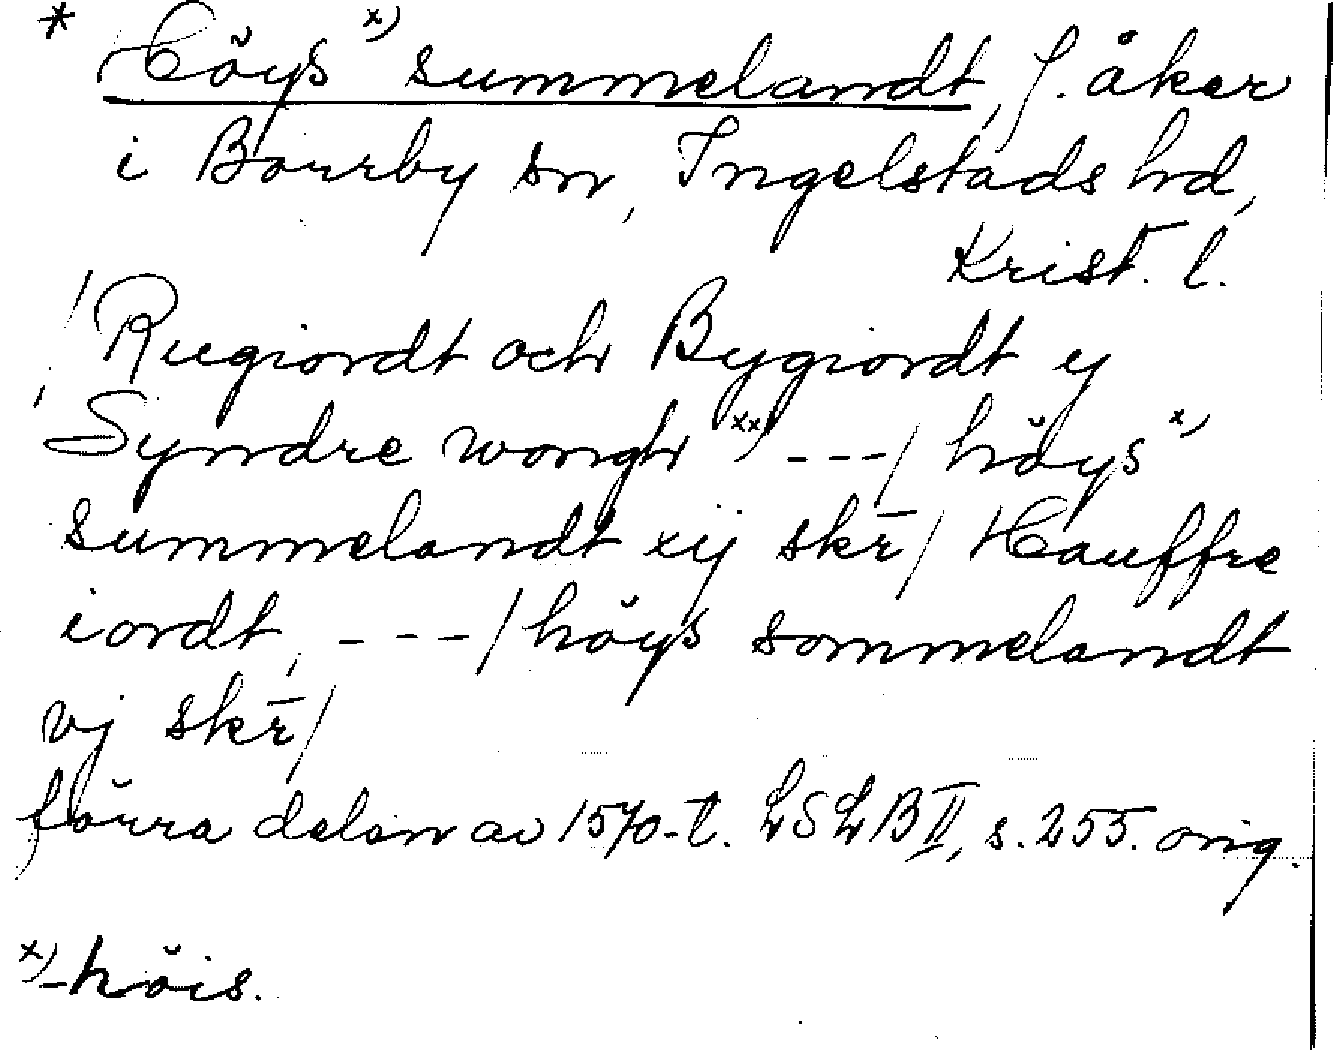 * Höys x) summelandt, f. åker
i Borrby sn, Ingelstads hd,
Krist. l.
/Rugiordt och Bygiordt y
Syndre wongh xx) ---/ höys x)
summelandt xij skr̄/ Hauffre
iordt, ---/ höys sommelandt
vj skr̄/
förra delen av 1570-t. LSLB II, s. 255. orig.
x) - höis.